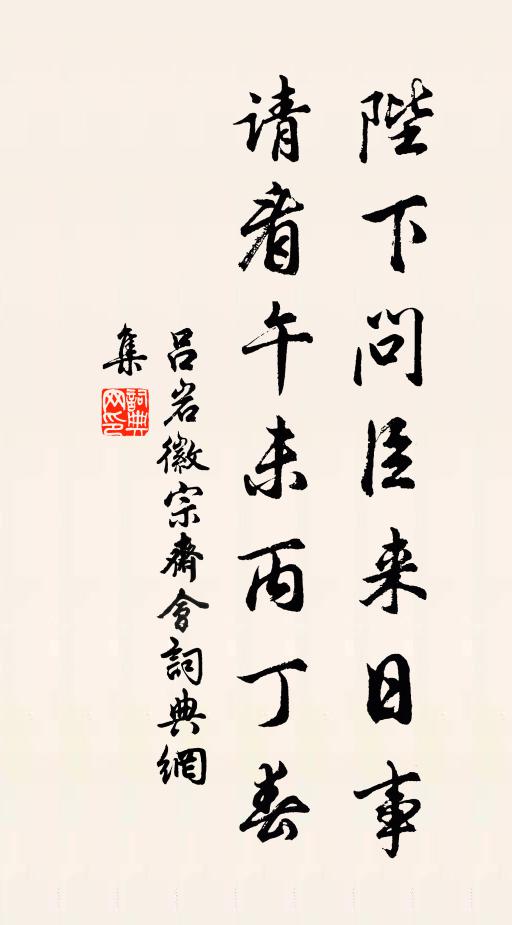 陛下问臣来日事
请看午未丙丁春
吕岩徽宗齋會詞典網
集
詞典
网印